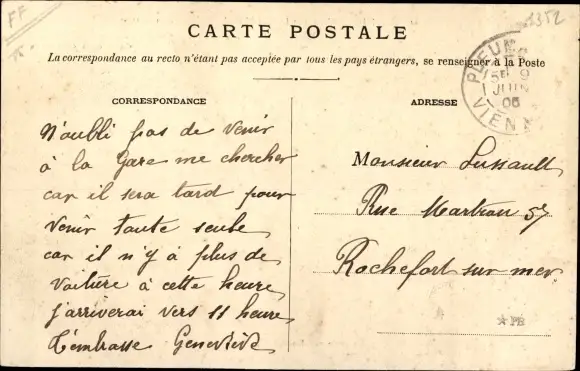 FF
3352
CARTE POSTALE
La correspondance au recto n'étant pas acceptée par tous les pays étrangers, se renseigner à la Poste
CORRESPONDANCE
ADRESSE
N'aubli pas de venir
à la Gare me chercher
car il sera tard pour
venir toute seule
car il n'y a plus de
voiture à cette heure
j'arriverai vers 11 heure
t'embrasse Geneviève
Monsieur Lussault
Rue Martrou 57
Rochefort sur mer
JUIN
06
VIENNE
*PB